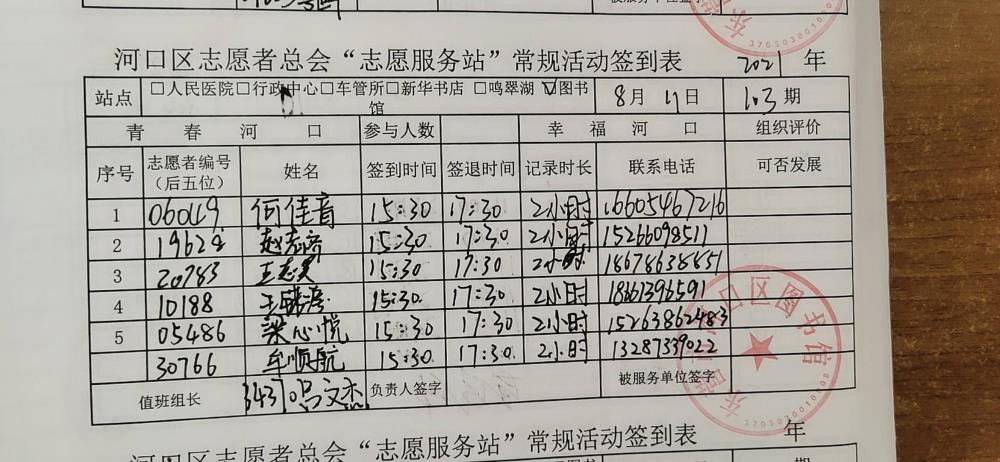 河口区志愿者总会“志愿服务站”常规活动签到表 2021 年
站点 □人民医院□行政中心□车管所□新华书店 □鸣翠湖 ☑图书馆 8月 11日 103期
青春河口 参与人数 幸福河口 组织评价
序号 志愿者编号（后五位） 姓名 签到时间 签退时间 记录时长 联系电话 可否发展
1 何佳音 15:30 17:30 2小时 16605467216
2 赵志裕 15:30 17:30 2小时 15266098511
3 20783 15:30 17:30 2小时 18678638851
4 10188 15:30 17:30 2小时 18661396591
5 05486 梁心悦 15:30 17:30 2小时 15263862483
30766 牟顺航 15:30 17:30 2小时 13287339022
值班组长 冯文杰 负责人签字 被服务单位签字
河口区图书馆
河口区志愿者总会“志愿服务站”常规活动签到表 年